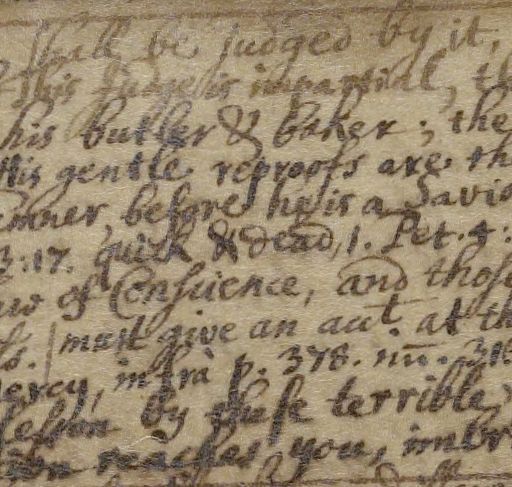 shall be judged by it,
this Judge is impartial, th
his butler & baker; the
His gentle reproofs are th
before he is a Savio
3:17. quick & dead, 1. Pet. 4:
of Conscience, and those
must give an acct. at th
ercy, infrà p. 378. nū. 31
by these terrible
reaches you, imbr